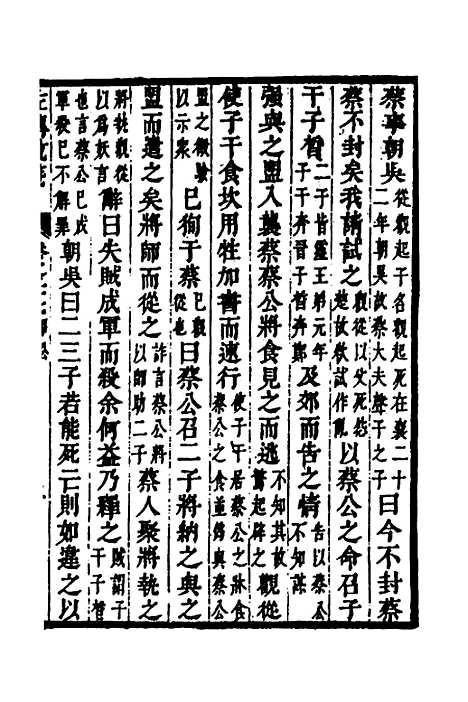 蔡事朝吳從觀起子名觀起死在襄二十二年朝吳故蔡大夫聲子之子曰今不封蔡
蔡不封矣我請試之觀從以父死怨楚故欲試作亂以蔡公之命召子
干子晳二子皆靈王弟元年子干奔晉子晳奔鄭及郊而告之情告以蔡公不知謀
強與之盟入襲蔡蔡公將食見之而逃不知其故驚起辟之觀從
使子干食坎用牲加書而速行使子干居蔡公之牀食蔡公之食並偽與蔡公
盟之徵驗以示眾己徇于蔡己觀從也曰蔡公召二子將納之與之
盟而遣之矣將師而從之詐言蔡公將以師助二子蔡人聚將執之
將執觀從以為妖言辭曰失賊成軍而殺余何益乃釋之賊謂子干子晳
也言蔡公已成軍殺己不解罪朝吳曰二三子若能死亡則如違之以